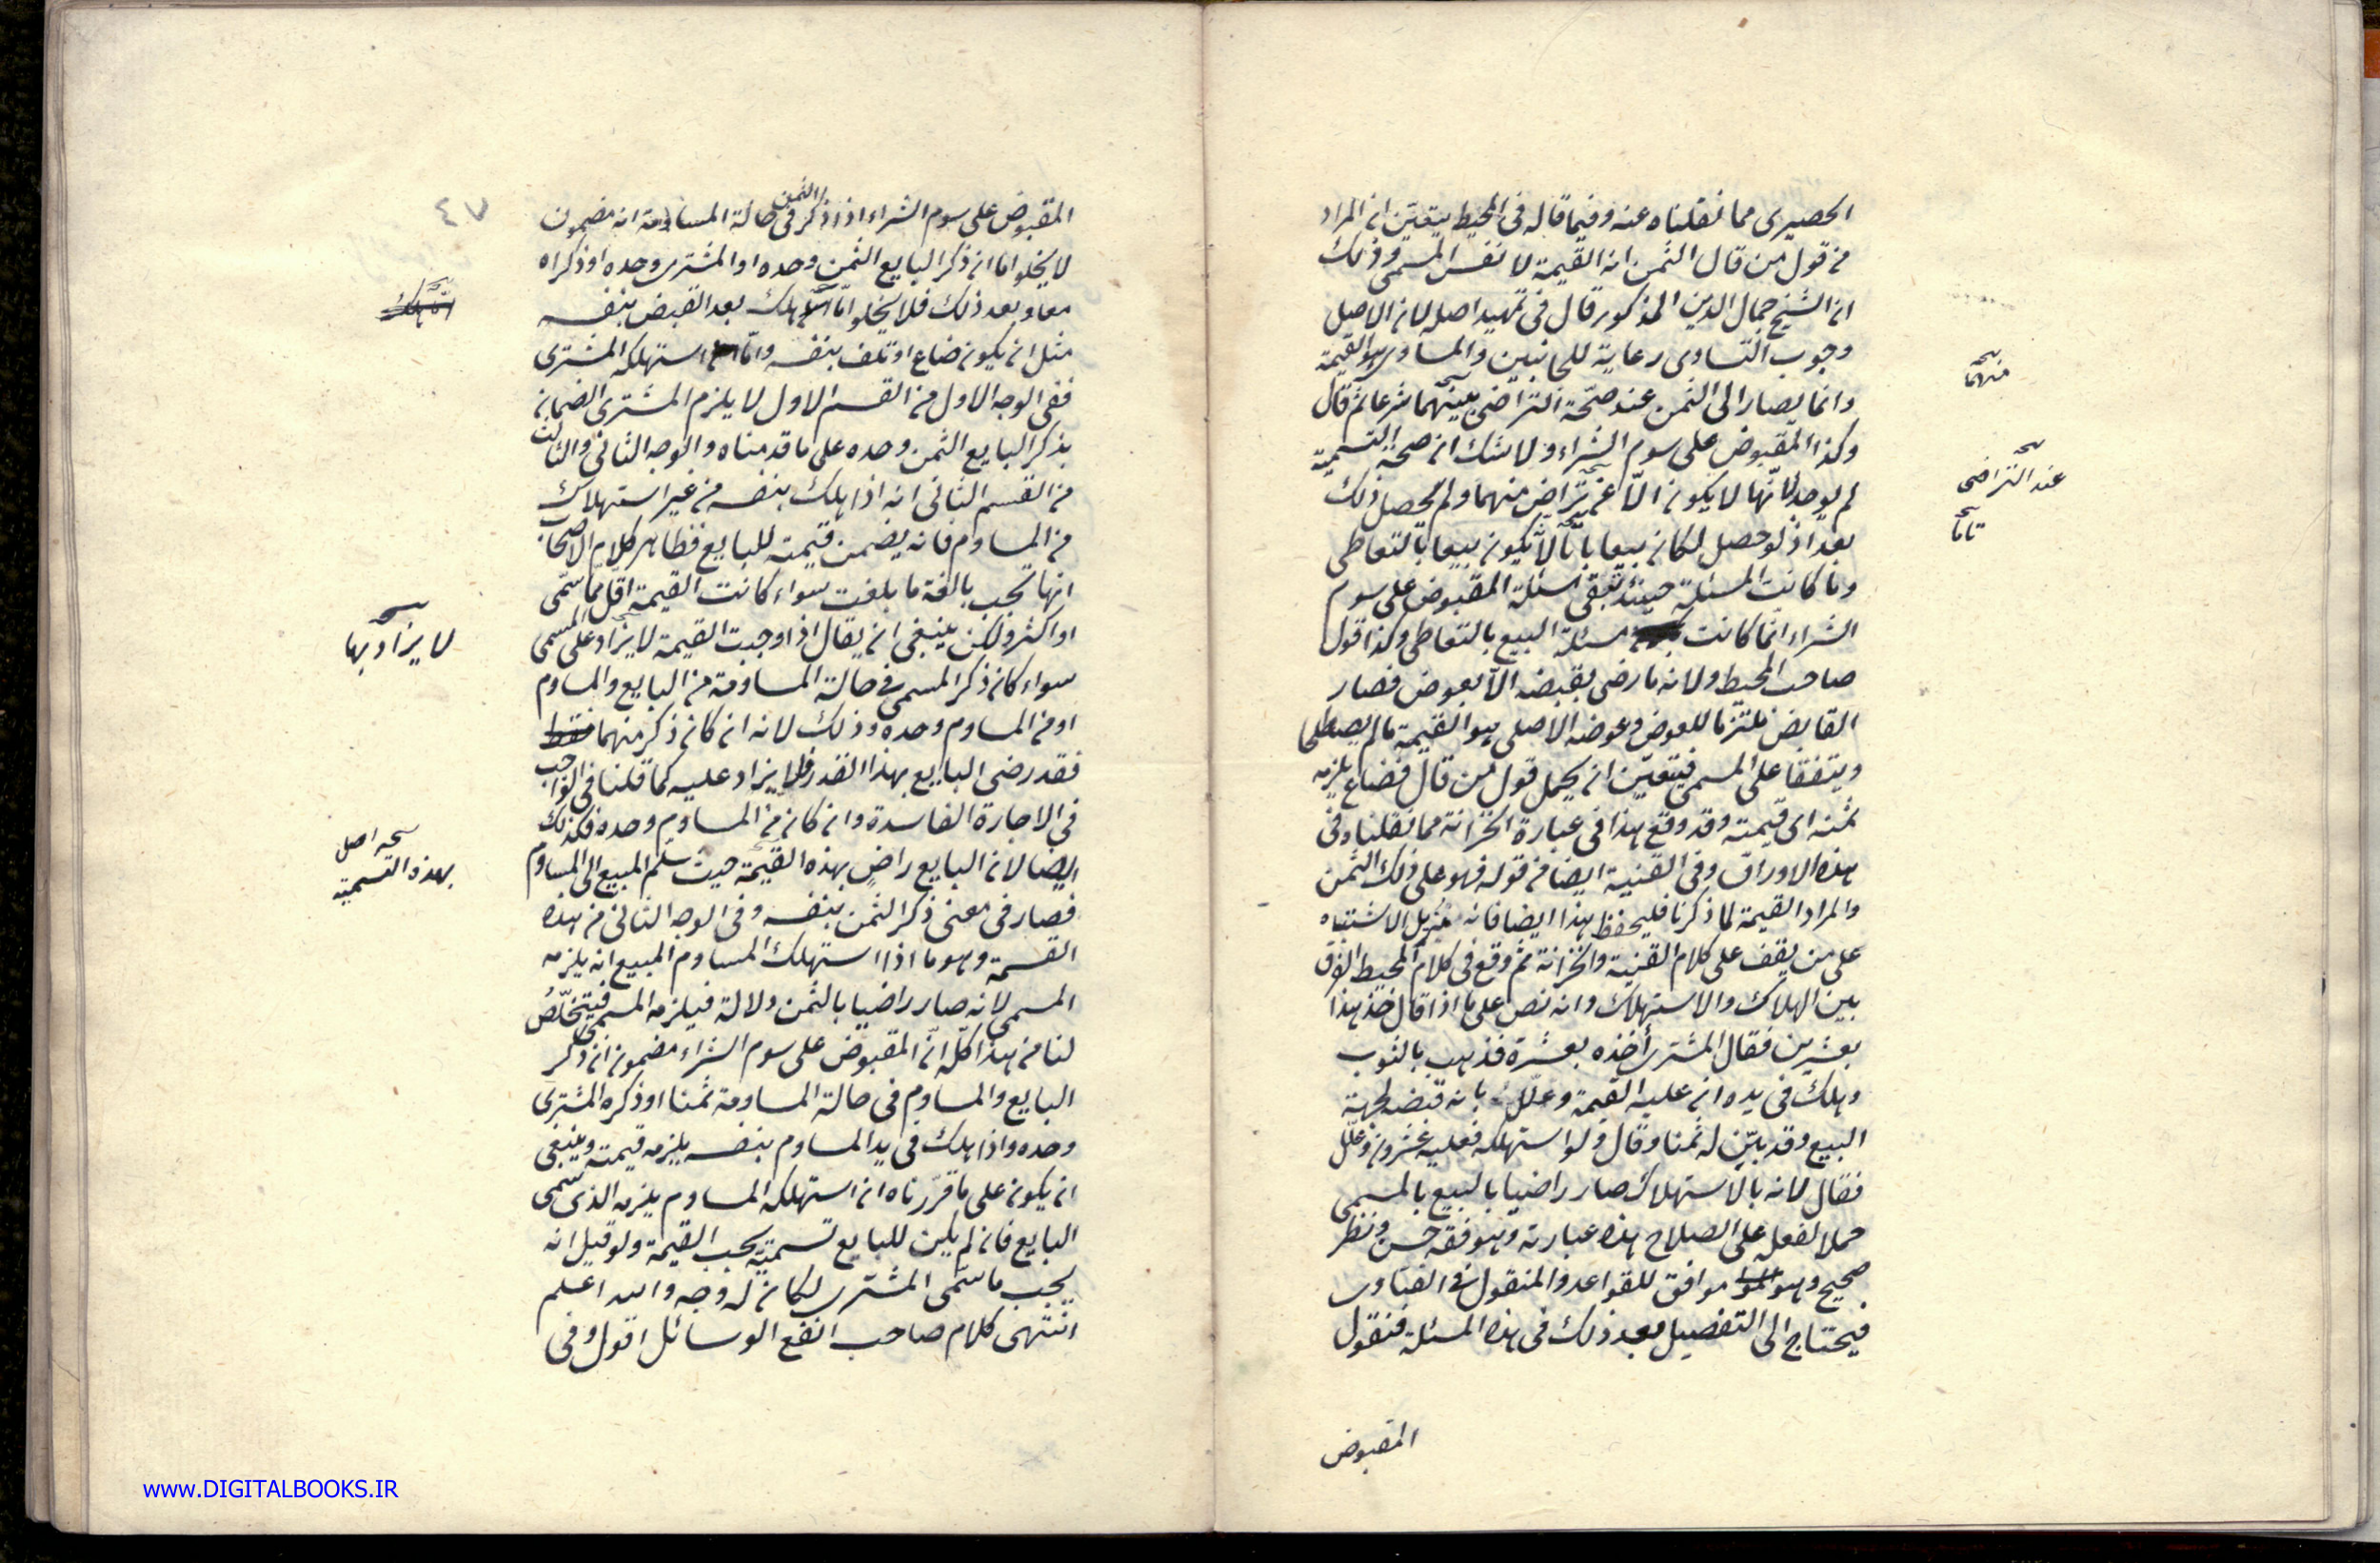 الحصيرى مما نقلناه عنه وفيما قاله فى المحيط يتعين ان المراد
من قول من قال الثمن انه القيمة لا نفس المسمى وذلك
ان الشيخ جمال الدين المذكور قال فى تمهيد اصله لان الاصل
وجوب التساوى رعاية للجانبين والمساوى هو القيمة
وانما يصار الى الثمن عند صحّة التراضى بينهما شرعا ثم قال
وكذا المقبوض على سوم الشراء ولا شك ان صحة التسمية
لم يوجد لانّها لا يكون الّا عن تراض منهما ولم يحصل ذلك
بعد اذ لو حصل لكان بيعا باتا لا يكون بيعا بالتعاطى
وما كانت المسئلة حينئذ تبقى مسئلة المقبوض على سوم
الشراء انّما كانت مسئلة البيع بالتعاطى وكذا قول
صاحب المحيط ولانه ما رضى بقبضه الّا بعوض فصار
القابض ملتزما للعوض وعوضه الاصلى هو القيمة ما لم يصطلحا
ويتفقا على المسمى فيتعيّن ان يحمل قول من قال فضاع يلزمه
ثمنه اى قيمته وقد وقع هذا فى عبارة الخزانة مما نقلناه فى
هذه الاوراق وفى القنية ايضا من قوله فهو على ذلك الثمن
والمراد القيمة لما ذكرنا فليحفظ هذا ايضا فانه مزيل الاشتباه
على من يقف على كلام القنية والخزانة ثم وقع فى كلام المحيط الفرق
بين الهلاك والاستهلاك وانه نص على ما اذا قال خذ هذا
بعشرين فقال المشترى أخذه بعشرة فذهب بالثوب
وهلك فى يده ان عليه القيمة وعلّل بانه قبضه لجهة
البيع وقد بيّن له ثمنا وقال ولو استهلكه فعليه عشرون وعلّل
فقال لانه بالاستهلاك صار راضيا بالبيع بالمسمى
حملا لفعله على الصلاح هذه عبارته وهو فقه حسن ونظر
صحيح وهو موافق للقواعد والمنقول فى الفتاوى
فيحتاج الى التفصيل بعد ذلك فى هذه المسئلة فنقول
المقبوض
منهما
عند التراضى
تاما
٤٧
المقبوض على سوم الشراء اذا ذكر الثمن فى حالة المساومة انه مضمون
لا يخلو اما ان ذكر البايع الثمن وحده او المشترى وحده او ذكراه
معا وبعد ذلك فلا يخلو امّا هلك بعد القبض بنفسه
مثل ان يكون ضاع او تلف بنفسه وامّا استهلكه المشترى
ففى الوجه الاول من القسم الاول لا يلزم المشترى الضمان
بذكر البايع الثمن وحده على ما قدمناه والوجه الثانى والثالث
من القسم الثانى انه اذا هلك بنفسه من غير استهلاك
من المساوم فانه يضمن قيمته للبايع فظاهر كلام الاصحاب
انها تجب بالغة ما بلغت سواء كانت القيمة اقل مما سمّى
او اكثر ولكن ينبغى ان يقال اذا وجبت القيمة لا يزاد على المسمى
سواء كان ذكر المسمى فى حالة المساومة من البايع والمساوم
او من المساوم وحده وذلك لانه ان كان ذكر منهما فقط
فقد رضى البايع بهذا القدر فلا يزاد عليه كما قلنا فى الواجب
فى الاجارة الفاسدة وان كان من المساوم وحده فكذلك
ايضا لان البايع راضٍ بهذه القيمة حيث سلّم المبيع الى المساوم
فصار فى معنى ذكر الثمن بنفسه وفى الوجه الثانى من هذه
القسمة وهو ما اذا استهلك المساوم المبيع انه يلزمه
المسمى لانه صار راضيا بالثمن دلالة فيلزمه المسمى فيتخلّصُ
لنا من هذا كلّه انّ المقبوض على سوم الشراء مضمون ان ذكر
البايع والمساوم فى حالة المساومة ثمنا او ذكره المشترى
وحده واذا هلك فى يد المساوم بنفسه يلزمه قيمته وينبغى
ان يكون على ما قرّرناه ان استهلكه المساوم يلزمه الذى سمّى
البايع فان لم يكن للبايع تسمية يجب القيمة ولو قيل انه
يجب ما سمّى المشترى لكان له وجه والله اعلم
انتهى كلام صاحب انفع الوسائل اقول وفى
لا يزاد بها
اصل
بهذه التسمية
www.DIGITALBOOKS.IR